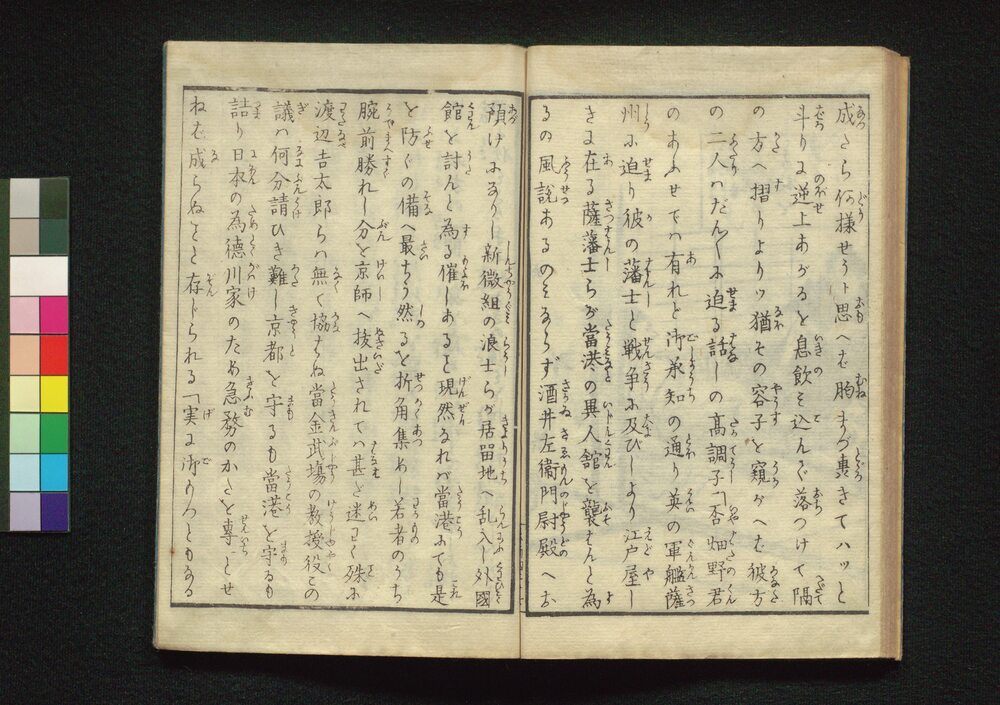 成たら何様せうト思へば胸まづ轟きてハッと
斗りに逆上あがるを息飲そ込んで落つけて隔
の方へ摺りよりッ猶その容子を窺がへば彼方
の二人ハだん〳〵に迫る話しの高調子「否畑野君
のあふせでハ有れど御承知の通り英の軍艦薩
州に迫り彼の藩士と戦争に及びしより江戸屋し
きに在る薩藩士らが當港の異人館を襲はんと為
るの風説あるのみならず酒井左衛門尉殿へお
預けになりし新徴組の浪士らが居留地へ乱入し外國
館を討んと為る催しあること現然なれバ當港にても是
を防ぐの備へ最ちう然るを折角集めし若者のうち
腕前勝れし分を京師へ抜出されてハ甚だ迷わく殊に
渡辺吉太郎らハ無く協ちぬ當金武塲の教授役この
議ハ何分請ひき難し京都を守るも當港を守るも
詰り日本の為徳川家のため急務のかたを專一とせ
ねば成らぬことと存じられる「実に御もつともなる